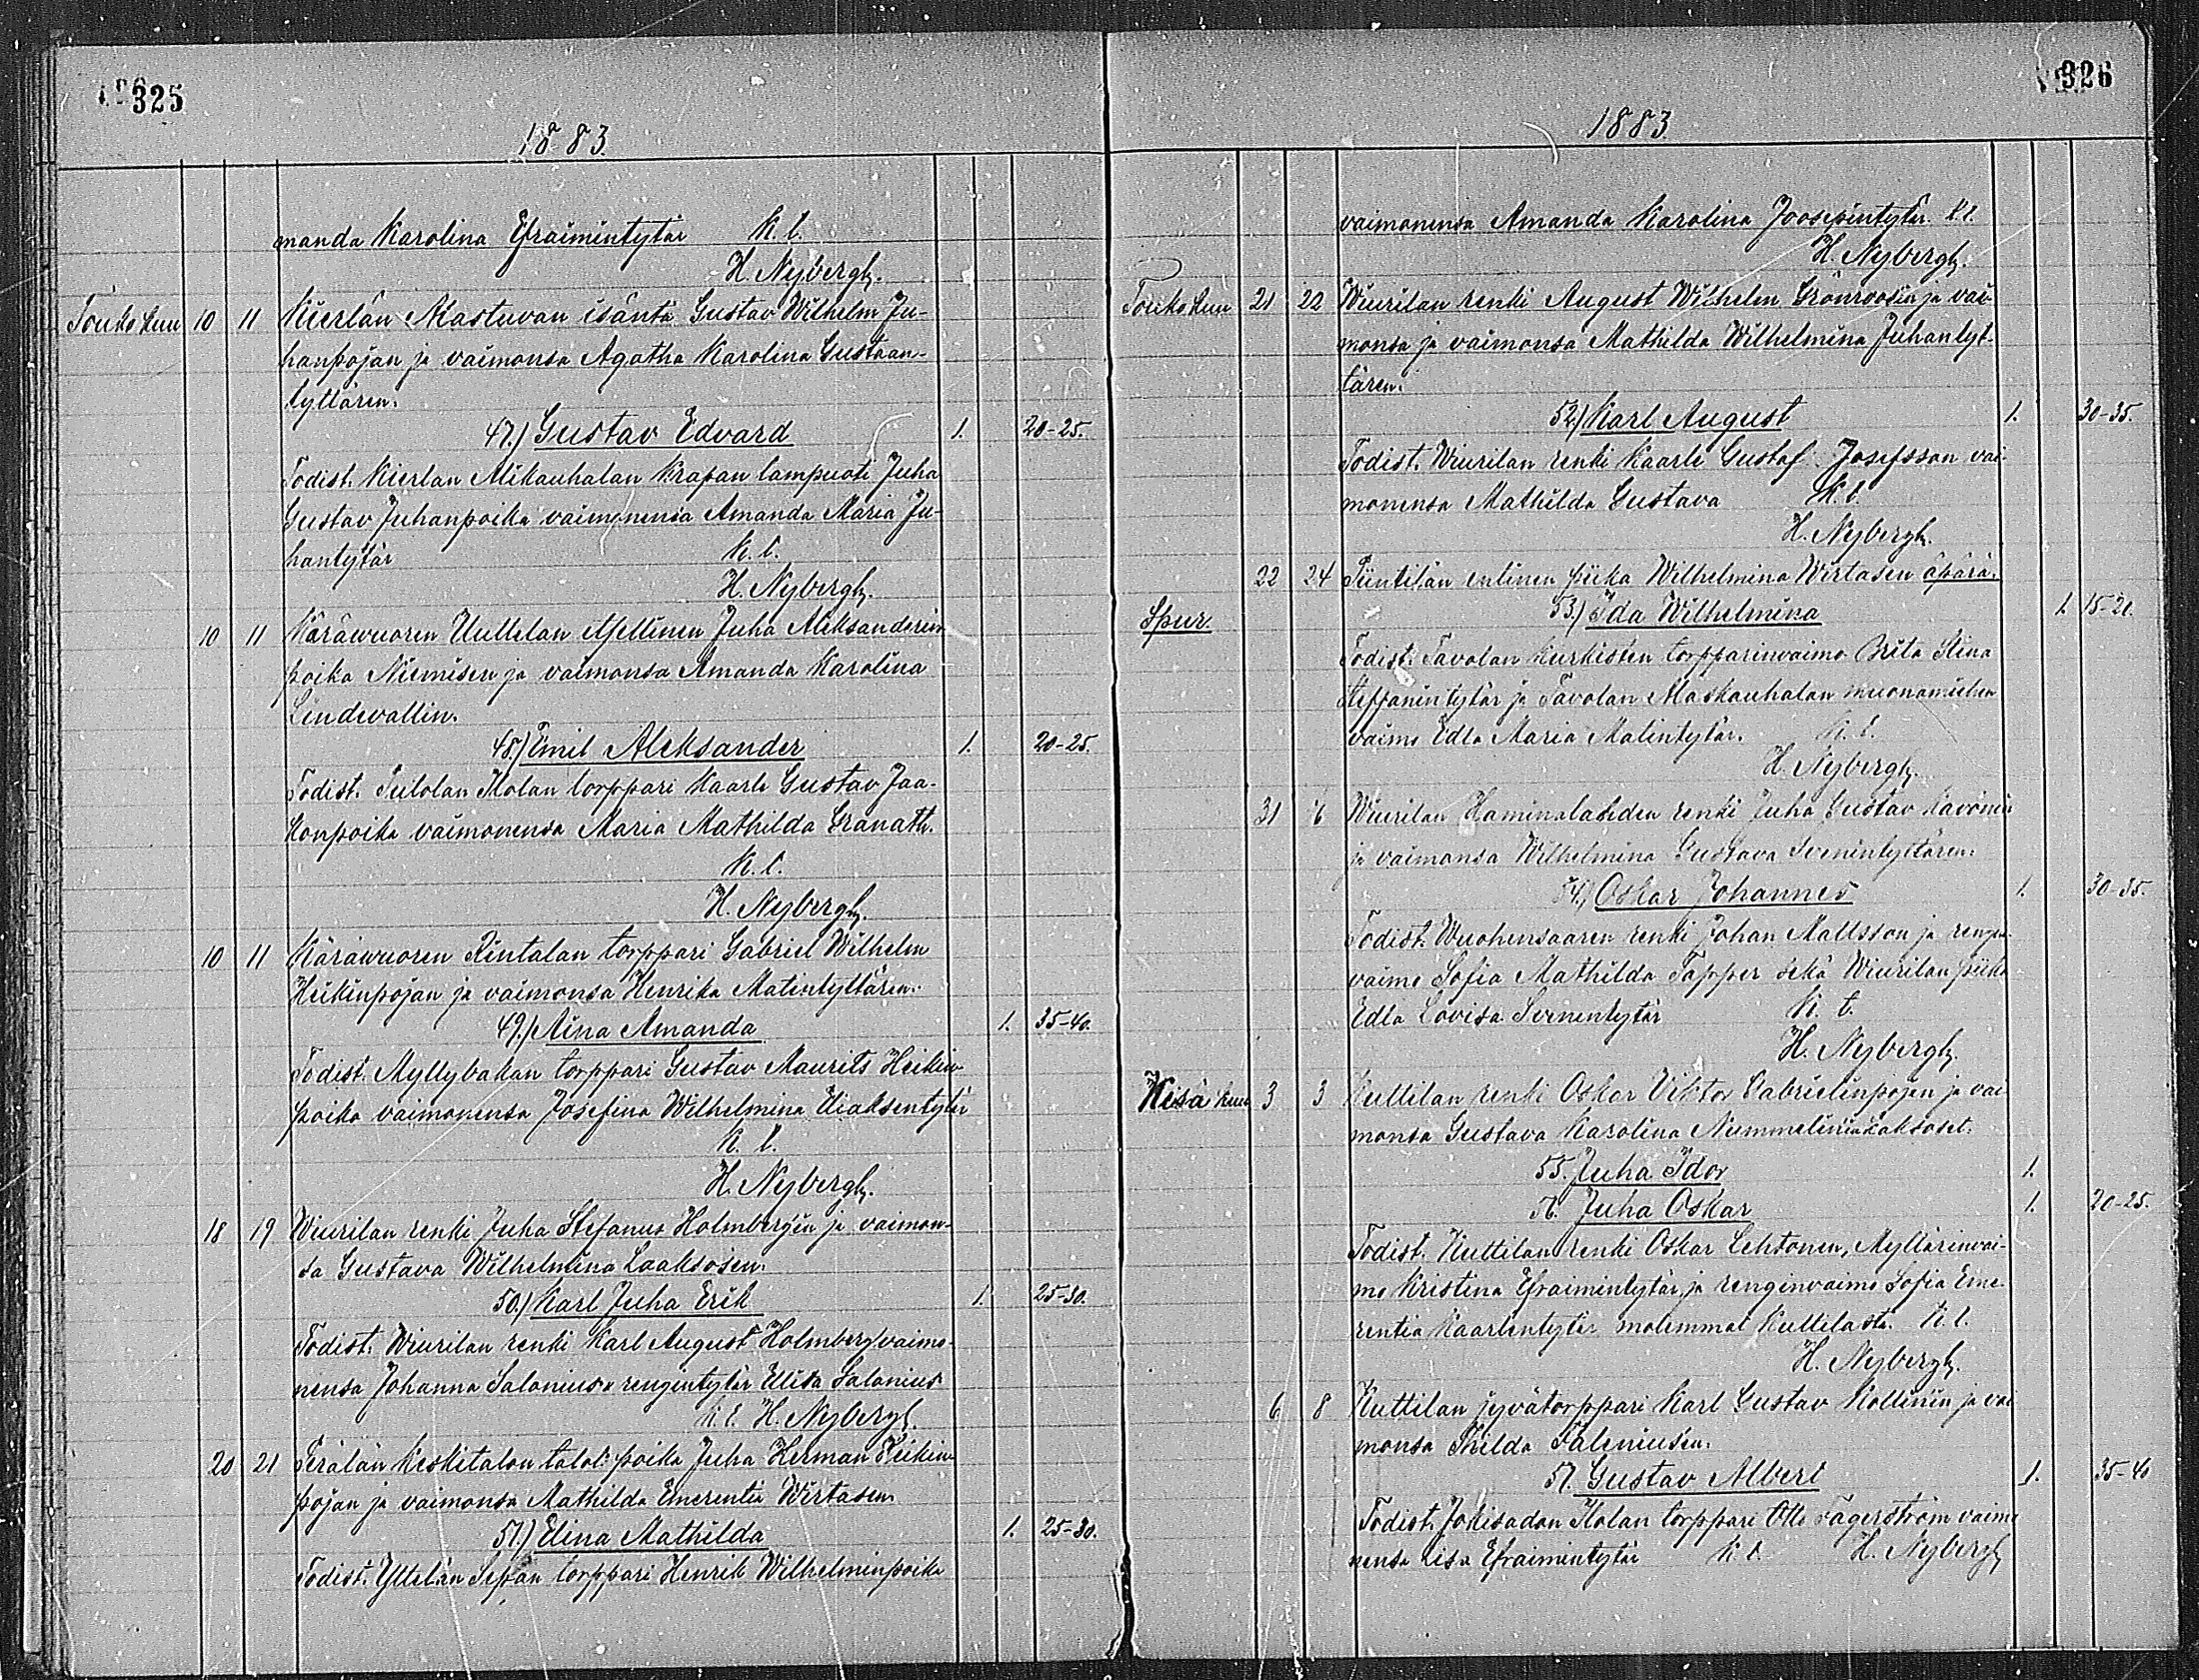 325
1883.
manda Karolina Efraimintytär K. t.
H. Nybergh.
Touko kuu 10 11 Kierlän Mastuvan isäntä Gustav Wilhelm Ju-
hanpojan ja vaimonsa Agatha Karolina Gustaan-
tyttären.
47.) Gustav Edvard 1. 20-25.
Todist. Kierlan Mikauhalan Krapan lampuoti Juha
Gustav Juhanpoika vaimonensa Amanda Maria Ju-
hantytär K. t.
H. Nybergh.
10 11 Käräwuoren Uutelan Juha Aleksanderin
poika Niemisen ja vaimonsa Amanda Karolina
Lindevallin.
48.) Emil Aleksander 1. 20-25.
Todist. Kolan torppari Kaarle Gustav Jaa-
konpoika vaimonensa Maria Mathilda Granath.
K. t.
H. Nybergh.
10 11 Käräwuoren Rintalan torppari Gabriel Wilhelm
Heikinpojan ja vaimonsa Henrika Matintyttären.
49.) Aina Amanda 1. 35-40.
Todist. Myllybakan torppari Gustav Maurits Heikin
poika vaimonensa Josefina Wilhelmina Eliaksentytär
K. t.
H. Nybergh.
18 19 Wiurilan renki Juha Stefanus Holmbergin ja vaimon-
sa Gustava Wilhelmina Laaksosen.
50.) Karl Juha Erik 1. 25-30.
Todist. Wiurilan renki Karl August Holmberg vaimo-
nensa Johanna Salonius rengintytär Elisa Salonius
K. t. H. Nybergh.
20 21 Terälän Keskitalon talol. poika Juha Herman Heikin-
pojan ja vaimonsa Mathilda Emerentia Wirtasen
51.) Elina Mathilda 1. 25-30.
Todist. Yltelän Sepän torppari Henrik Wilhelminpoika
326
1883
vaimonensa Amanda Karolina Joosepintytär. K. t.
H. Nybergh.
Touko kuu 21 22 Wiurilan renki August Wilhelm Grönroosin ja vai-
monsa ja vaimonsa Mathilda Wilhelmina Juhantyt-
tären.
52.) Karl August 1. 30-35.
Todist. Wiurilan renki Kaarle Gustaf Josefsson vai-
monensa Mathilda Gustava K. t.
H. Nybergh.
22 24 Piintilän entinen piika Wilhelmina Wirtasen äpärä.
Spur. 53.) Ida Wilhelmina 1. 15-20.
Todist. Tavolan Kurkisten torpparinvaimo Brita Stina
Steffanintytär ja Tavolan Maskauhalan muonamiehen
vaimo Edla Maria Matintytär. K. t.
H. Nybergh.
31 6 Wiurilan renki Juha Gustav
ja vaimonsa Wilhelmina Gustava Svenintyttären.
54.) Oskar Johannes 1. 30-35.
Todist. Wuohensaaren renki Johan Mattsson ja rengin
vaimo Sofia Mathilda Tapper sekä Wiurilan piika
Edla Lovisa Svenintytär K. t.
H. Nybergh.
Kesä kuu 3 3 Kuttilan renki Oskar Viktor Gabrielinpojan ja vai-
monsa Gustava Karolina Nummelinin kaksoset.
55. Juha Idor 1.
56. Juha Oskar 1. 20-25.
Todist. Kuttilan renki Oskar Lehtonen, Myllärinvai-
mo Kristina Efraimintytär ja renginvaimo Sofia Eme-
rentia Kaarlentytär molemmat Kuttilasta. K. t.
H. Nybergh.
6 8 Kuttilan jyvätorppari Karl Gustav Kollinin ja vai
monsa Thilda Faleniusen.
57. Gustav Albert 1. 35-40
Todist. Kolan torppari Otto Fagerström vaimo
nensa Lisa Efraimintytär K. t. H. Nybergh